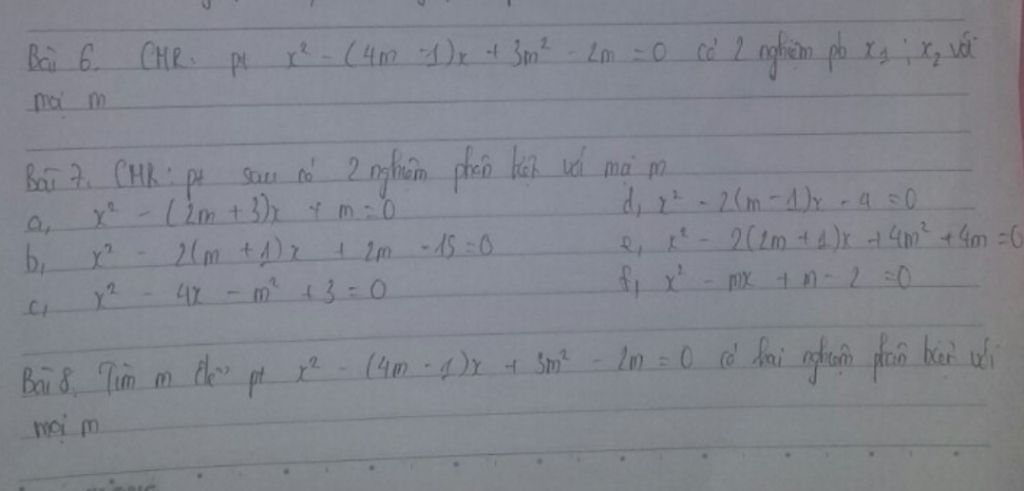 Bài 6. CMR: pt x² - (4m - 1)x + 3m² - 2m = 0 có 2 nghiệm pb x₁ ; x₂ với
mọi m
Bài 7. CMR: pt sau có 2 nghiệm phân biệt với mọi m
a, x² - (2m + 3)x + m = 0
d, x² - 2(m - 1)x - 9 = 0
b, x² - 2(m + 1)x + 2m - 15 = 0
e, x² - 2(2m + 1)x + 4m² + 4m = 0
c, x² - 4x - m² + 3 = 0
f, x² - mx + m - 2 = 0
Bài 8. Tìm m để pt x² - (4m - 1)x + 3m² - 2m = 0 có hai nghiệm phân biệt với
mọi m